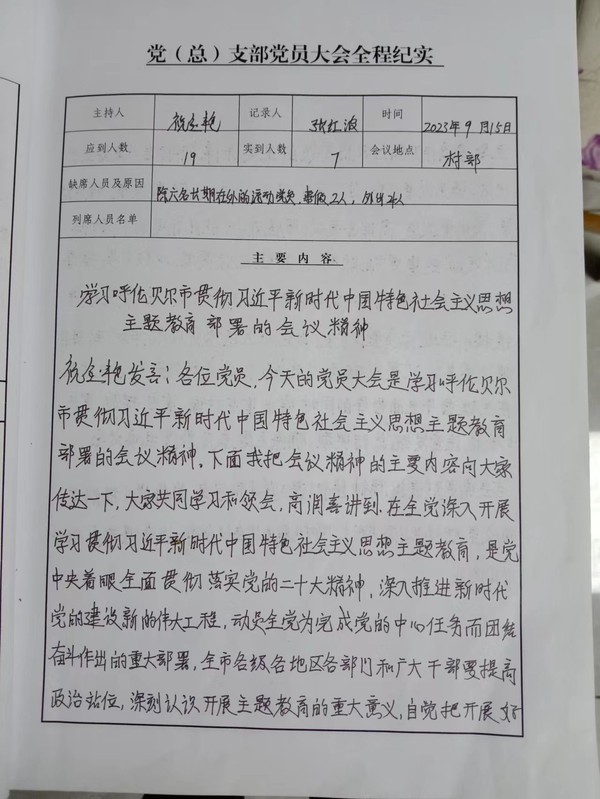 党（总）支部党员大会全程纪实
主持人 记录人 张红波 时间 2023年9月15日
应到人数 19 实到人数 7 会议地点 村部
缺席人员及原因 除六名长期在外的流动党员，事假2人，外出4人
列席人员名单
主要内容
学习呼伦贝尔市贯彻习近平新时代中国特色社会主义思想
主题教育部署的会议精神
发言：各位党员，今天的党员大会是学习呼伦贝尔
市贯彻习近平新时代中国特色社会主义思想主题教育
部署的会议精神。下面我把会议精神的主要内容向大家
传达一下，大家共同学习和领会，高润喜讲到.在全党深入开展
学习贯彻习近平新时代中国特色社会主义思想主题教育，是党
中央着眼全面贯彻落实党的二十大精神，深入推进新时代
党的建设新的伟大工程，动员全党为完成党的中心任务而团结
奋斗作出的重大部署，全市各级各地区各部门和广大干部要提高
政治站位，深刻认识开展主题教育的重大意义，自觉把开展好